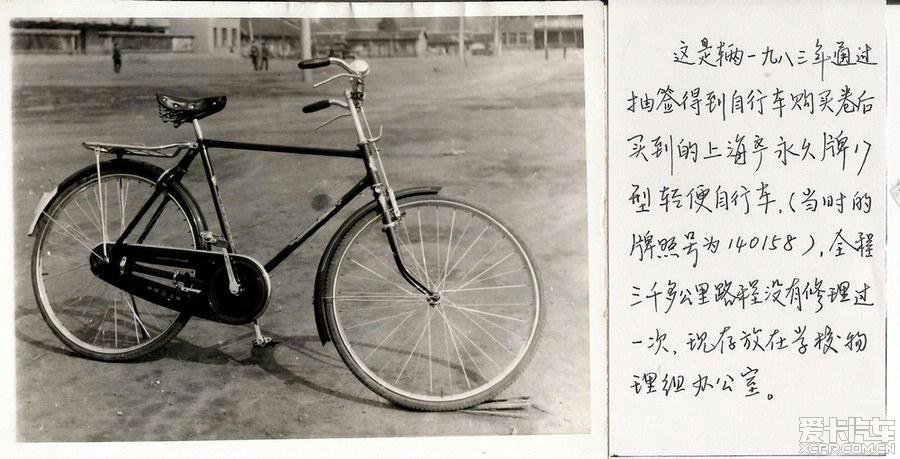 这是辆一九八三年通过
抽签得到自行车购买卷后
买到的上海产永久牌17
型轻便自行车,(当时的
牌照号为140158),全程
三千多公里路程没有修理过
一次,现存放在学校物
理组办公室。
爱卡汽车
XCAR.COM.CN